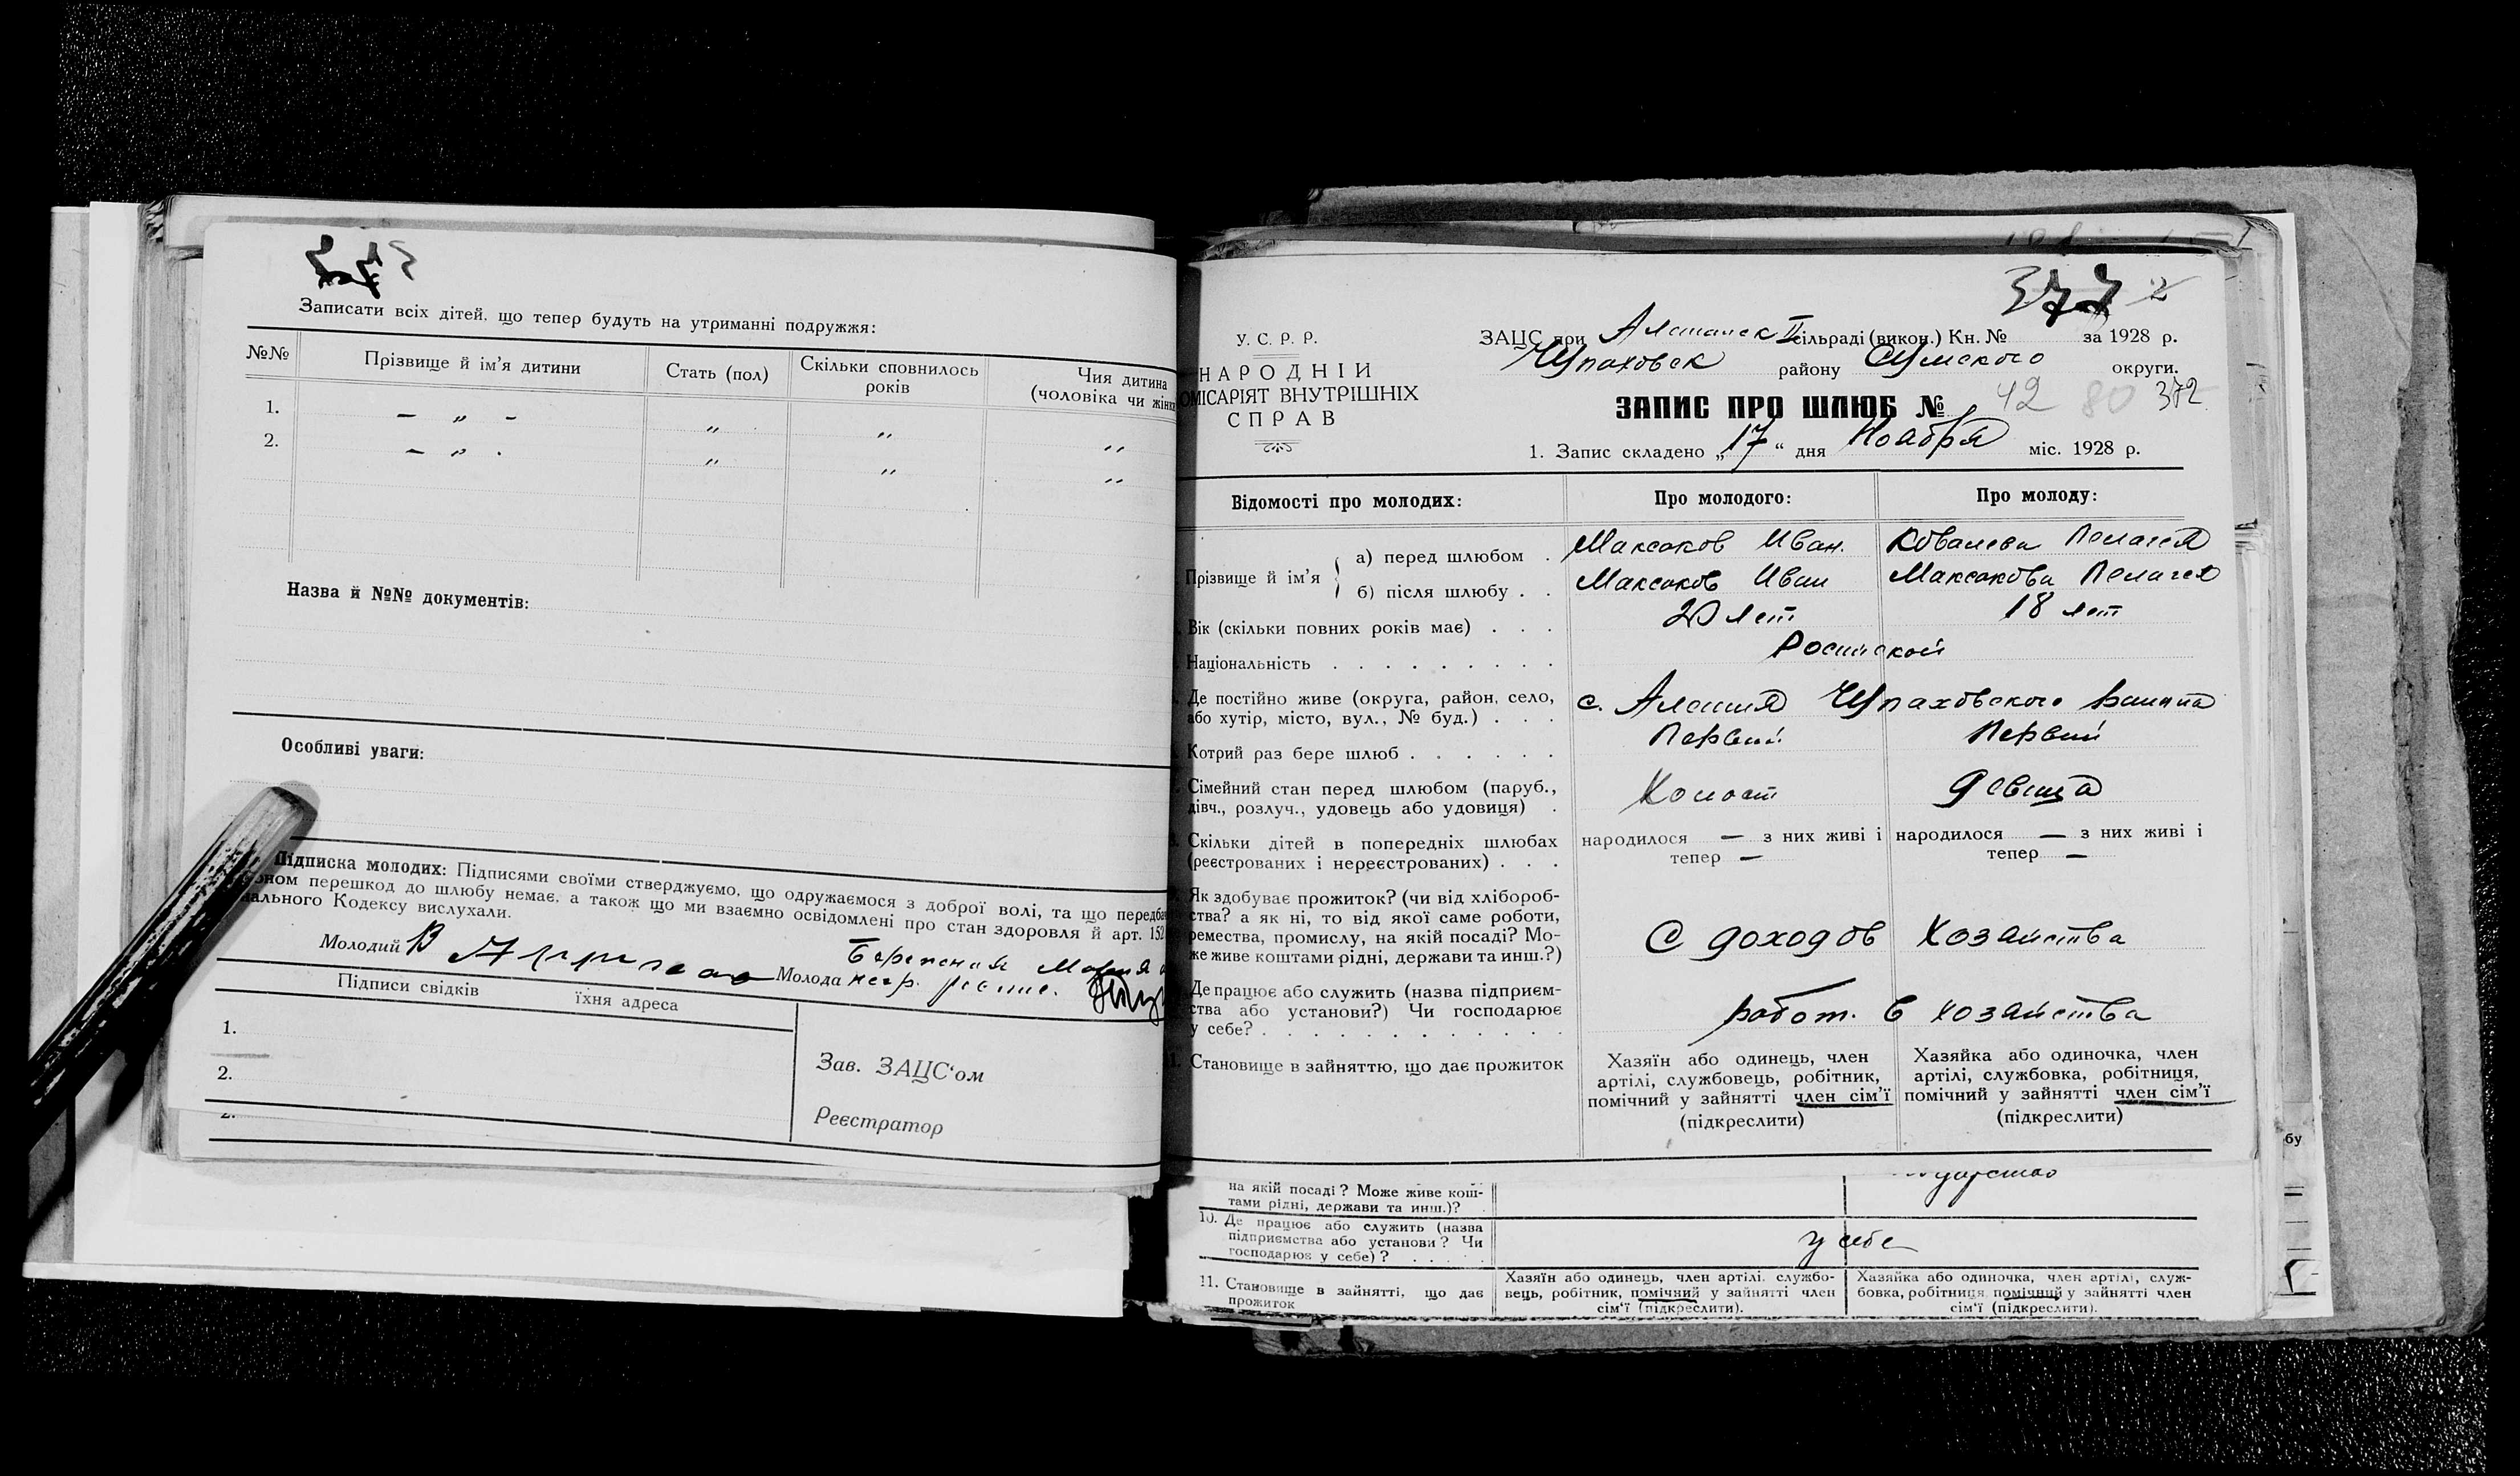 Записати всіх дітей, що тепер будуть на утриманні подружжя:
№№ Прізвище й ім'я дитини Стать (пол) Скільки сповнилось років Чия дитина (чоловіка чи жінк
1. — „ — „ „ „
2. — „ . „ „ „
Назва й №№ документів:
Особливі уваги:
Підписка молодих: Підписями своїми стверджуємо, що одружаємося з доброї волі, та що передба
оном перешкод до шлюбу немає, а також що ми взаємно освідомлені про стан здоровля й арт. 152
ального Кодексу вислухали.
Молодий В Молода
Підписи свідків їхня адреса
1.
2.
Зав. ЗАЦС'ом
Реєстратор
2.
377 2
У. С. Р. Р.
НАРОДНІЙ
ОМІСАРІЯТ ВНУТРІШНІХ
СПРАВ
ЗАЦС при II сільраді (викон.) Кн. № за 1928 р.
району Сумского округи.
ЗАПИС ПРО ШЛЮБ № 42 80 372
1. Запис складено „17“ дня Ноября міс. 1928 р.
Відомості про молодих: Про молодого: Про молоду:
Прізвище й ім'я
а) перед шлюбом . Максаков Иван. Ковалева Пелагея
б) після шлюбу . . Максаков Иван Максакова Пелагея
Вік (скільки повних років має) . . . 20 лет 18 лет
Національність . . . . . . . . . Росийской
Де постійно живе (округа, район, село,
або хутір, місто, вул., № буд.) . . . с.
Котрий раз бере шлюб . . . . . . Первый Первый
Сімейний стан перед шлюбом (паруб.,
дівч., розлуч., удовець або удовиця) . Холост Девица
Скільки дітей в попередніх шлюбах
(реєстрованих і нереєстрованих) . . .
народилося — з них живі і тепер — народилося — з них живі і тепер —
Як здобуває прожиток? (чи від хлібороб-
ства? а як ні, то від якої саме роботи,
ремества, промислу, на якій посаді? Мо-
же живе коштами рідні, держави та инш.?)
С доходов Хозайства
Де працює або служить (назва підприєм-
ства або установи?) Чи господарює
у себе? . . . . . . . . . . . .
работ. в хозайства
1. Становище в зайняттю, що дає прожиток
Хазяїн або одинець, член
артілі, службовець, робітник,
помічний у зайнятті член сім'ї
(підкреслити)
Хазяйка або одиночка, член
артілі, службовка, робітниця,
помічний у зайнятті член сім'ї
(підкреслити)
на якій посаді? Може живе кош-
тами рідні, держави та инш.)?
10. Де працює або служить (назва
підприємства або установи? Чи
господарює у себе)? . . . .
у себе
11. Становище в зайнятті, що дає
прожиток
Хазяїн або одинець, член артілі, службо-
вець, робітник, помічний у зайнятті член
сім'ї (підкреслити).
Хазяйка або одиночка, член артілі, служ-
бовка, робітниця, помічний у зайнятті член
сім'ї (підкреслити).
бу